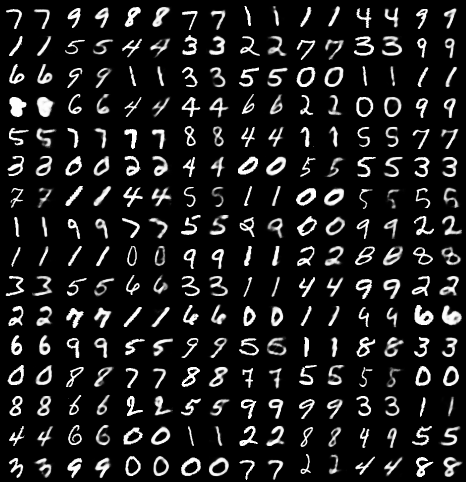 7 7 9 9 8 8 7 7 1 1 1 1 4 4 9 9
1 1 5 5 4 4 3 3 2 2 7 7 3 3 9 9
6 6 9 9 1 1 3 3 5 5 0 0 1 1 1 1
6 6 4 4 4 4 6 6 2 2 0 0 9 9
5 5 7 7 7 7 8 8 4 4 1 1 5 5 7 7
3 3 0 0 2 2 4 4 0 0 5 5 5 5 3 3
7 7 1 1 4 4 5 5 1 1 0 0 5 5 5 5
1 1 9 9 7 7 5 5 2 9 0 0 9 9 2 2
1 1 1 1 0 0 9 9 1 1 2 2 8 8 8 8
3 3 5 5 6 6 3 3 1 1 4 4 9 9 2 2
2 2 7 7 1 1 6 6 0 0 1 1 9 9 6 6
6 6 9 9 5 5 9 9 5 5 1 1 8 8 3 3
0 0 8 8 7 7 8 8 7 7 5 5 5 5 0 0
8 8 6 6 2 2 5 5 9 9 9 9 3 3 1 1
4 4 6 6 0 0 1 1 2 2 8 8 4 9 5 5
3 3 9 9 0 0 0 0 7 7 2 2 4 4 8 8